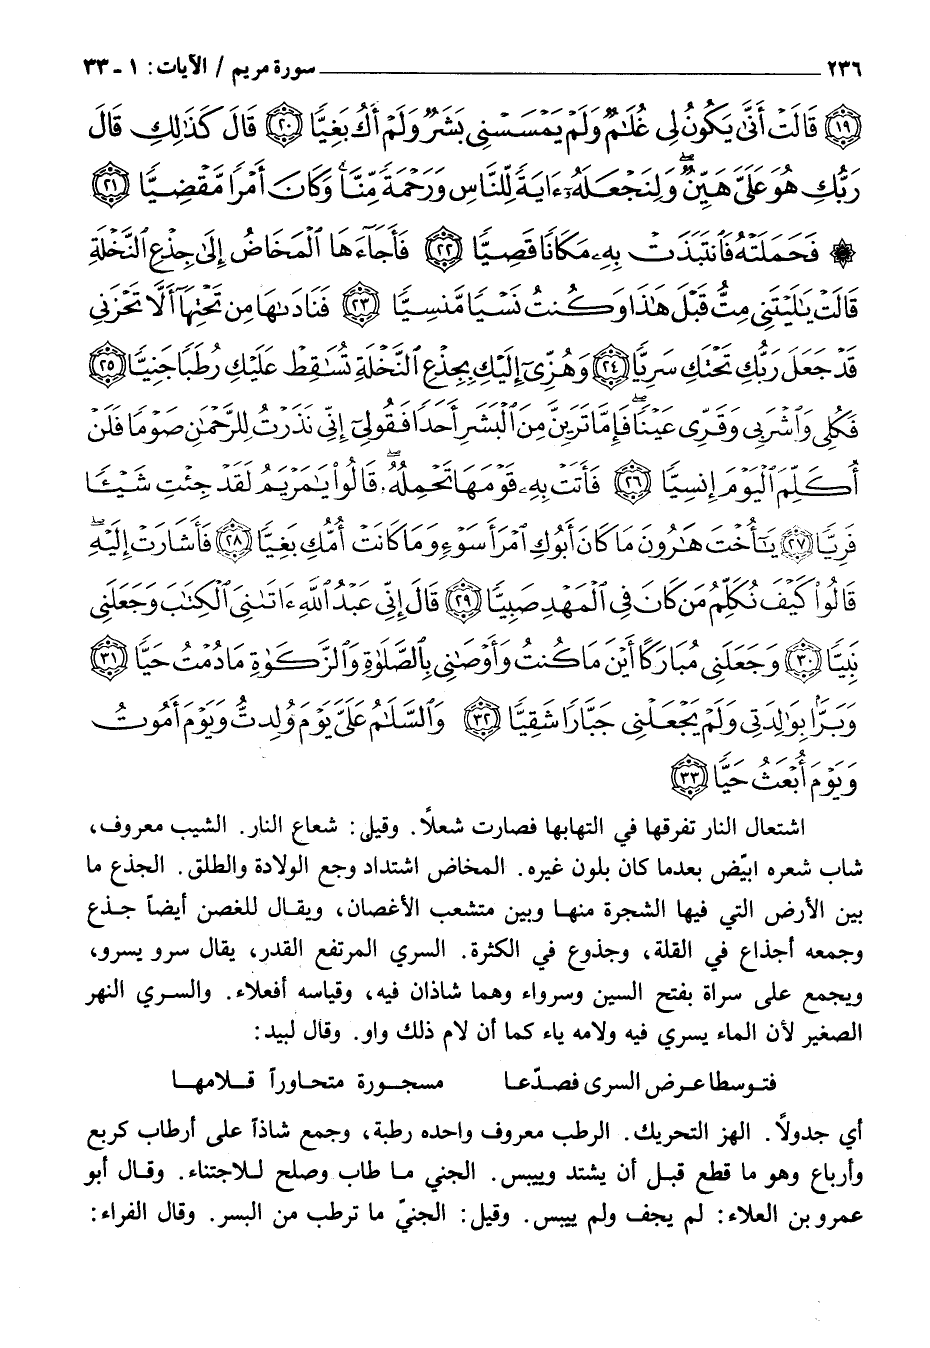 ٢٣٦ ــــــــــــــــــــــــــــــــــــــــــــــــــــــــــــ سورة مريم / الآيات: ١ ـ ٣٣
﴿١٩﴾ قَالَتْ أَنَّىٰ يَكُونُ لِي غُلَٰمٌ وَلَمْ يَمْسَسْنِي بَشَرٌ وَلَمْ أَكُ بَغِيًّا ﴿٢٠﴾ قَالَ كَذَٰلِكِ قَالَ
رَبُّكِ هُوَ عَلَيَّ هَيِّنٌ ۖ وَلِنَجْعَلَهُۥٓ ءَايَةً لِّلنَّاسِ وَرَحْمَةً مِّنَّا ۚ وَكَانَ أَمْرًا مَّقْضِيًّا ﴿٢١﴾
۞ فَحَمَلَتْهُ فَانتَبَذَتْ بِهِۦ مَكَانًا قَصِيًّا ﴿٢٢﴾ فَأَجَآءَهَا ٱلْمَخَاضُ إِلَىٰ جِذْعِ ٱلنَّخْلَةِ
قَالَتْ يَٰلَيْتَنِي مِتُّ قَبْلَ هَٰذَا وَكُنتُ نَسْيًا مَّنسِيًّا ﴿٢٣﴾ فَنَادَىٰهَا مِن تَحْتِهَآ أَلَّا تَحْزَنِي
قَدْ جَعَلَ رَبُّكِ تَحْتَكِ سَرِيًّا ﴿٢٤﴾ وَهُزِّيٓ إِلَيْكِ بِجِذْعِ ٱلنَّخْلَةِ تُسَٰقِطْ عَلَيْكِ رُطَبًا جَنِيًّا ﴿٢٥﴾
فَكُلِي وَٱشْرَبِي وَقَرِّي عَيْنًا ۖ فَإِمَّا تَرَيِنَّ مِنَ ٱلْبَشَرِ أَحَدًا فَقُولِيٓ إِنِّي نَذَرْتُ لِلرَّحْمَٰنِ صَوْمًا فَلَنْ
أُكَلِّمَ ٱلْيَوْمَ إِنسِيًّا ﴿٢٦﴾ فَأَتَتْ بِهِۦ قَوْمَهَا تَحْمِلُهُۥ ۖ قَالُوا۟ يَٰمَرْيَمُ لَقَدْ جِئْتِ شَيْـًٔا
فَرِيًّا ﴿٢٧﴾ يَٰٓأُخْتَ هَٰرُونَ مَا كَانَ أَبُوكِ ٱمْرَأَ سَوْءٍ وَمَا كَانَتْ أُمُّكِ بَغِيًّا ﴿٢٨﴾ فَأَشَارَتْ إِلَيْهِ ۖ
قَالُوا۟ كَيْفَ نُكَلِّمُ مَن كَانَ فِي ٱلْمَهْدِ صَبِيًّا ﴿٢٩﴾ قَالَ إِنِّي عَبْدُ ٱللَّهِ ءَاتَىٰنِيَ ٱلْكِتَٰبَ وَجَعَلَنِي
نَبِيًّا ﴿٣٠﴾ وَجَعَلَنِي مُبَارَكًا أَيْنَ مَا كُنتُ وَأَوْصَٰنِي بِٱلصَّلَوٰةِ وَٱلزَّكَوٰةِ مَا دُمْتُ حَيًّا ﴿٣١﴾
وَبَرًّۢا بِوَٰلِدَتِي وَلَمْ يَجْعَلْنِي جَبَّارًا شَقِيًّا ﴿٣٢﴾ وَٱلسَّلَٰمُ عَلَيَّ يَوْمَ وُلِدتُّ وَيَوْمَ أَمُوتُ
وَيَوْمَ أُبْعَثُ حَيًّا ﴿٣٣﴾
اشتعال النار تفرقها في التهابها فصارت شعلاً. وقيل: شعاع النار. الشيب معروف،
شاب شعره ابيّض بعدما كان بلون غيره. المخاض اشتداد وجع الولادة والطلق. الجذع ما
بين الأرض التي فيها الشجرة منها وبين متشعب الأغصان، ويقال للغصن أيضاً جذع
وجمعه أجذاع في القلة، وجذوع في الكثرة. السري المرتفع القدر، يقال سرو يسرو،
ويجمع على سراة بفتح السين وسرواء وهما شاذان فيه، وقياسه أفعلاء. والسري النهر
الصغير لأن الماء يسري فيه ولامه ياء كما أن لام ذلك واو. وقال لبيد:
فتوسطا عرض السرى فصدّعا مسجورة متحاوراً قلامها
أي جدولاً. الهز التحريك. الرطب معروف واحده رطبة، وجمع شاذاً على أرطاب كربع
وأرباع وهو ما قطع قبل أن يشتد وييبس. الجني ما طاب وصلح للاجتناء. وقال أبو
عمرو بن العلاء: لم يجف ولم ييبس. وقيل: الجنيّ ما ترطب من البسر. وقال الفراء: